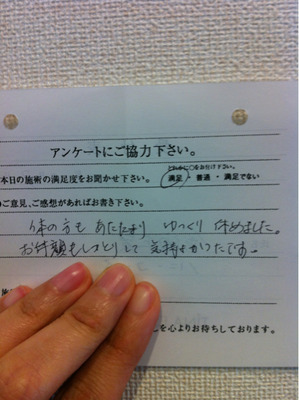 アンケートにご協力下さい。
どれかに○をお付け下さい。
本日の施術の満足度をお聞かせ下さい。 満足・普通・満足でない
のご意見、ご感想があればお書き下さい。
体の方もあたたまり ゆっくり休めました。
お顔もしっとりして 気持ちよかったです。
を心よりお待ちしております。